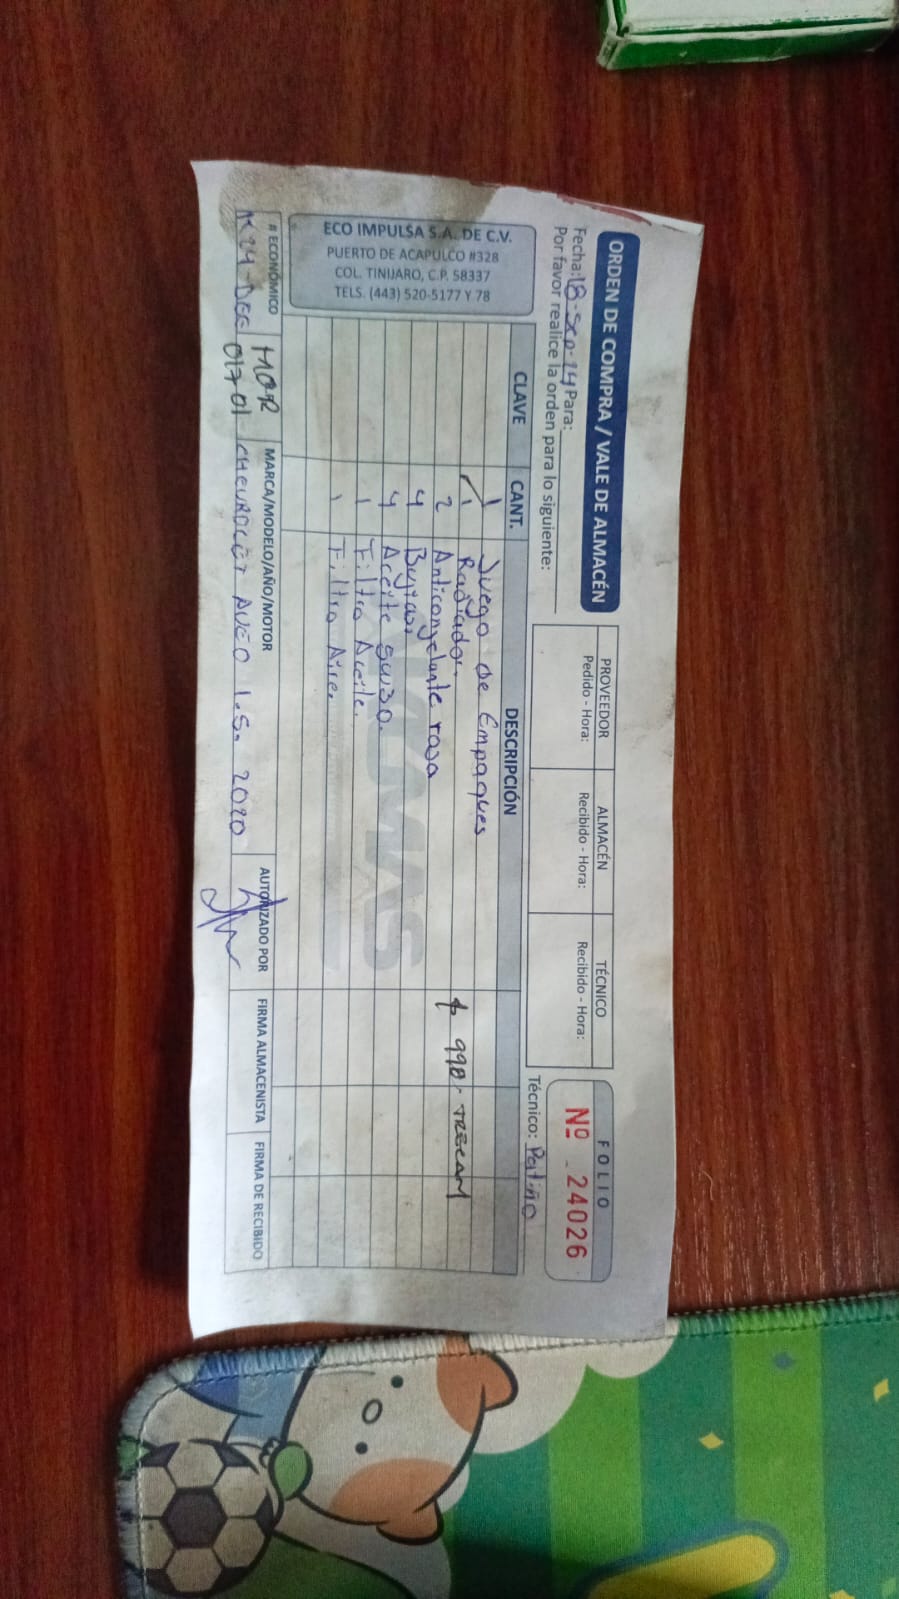 ORDEN DE COMPRA / VALE DE ALMACÉN
Fecha: 18-sep-24 Para:
Por favor realice la orden para lo siguiente:
PROVEEDOR ALMACÉN TÉCNICO
Pedido - Hora: Recibido - Hora: Recibido - Hora:
FOLIO
Nº 24026
Técnico: Patiño
ECO IMPULSA S.A. DE C.V.
PUERTO DE ACAPULCO #328
COL. TINIJARO, C.P. 58337
TELS. (443) 520-5177 Y 78
CLAVE CANT. DESCRIPCIÓN
1 Juego de Empaques
1 Radiador. $ 998.- TRECAM
2 Anticongelante rosa
4 Bujias
4 Aceite 5W30.
1 Filtro Aceite.
1 Filtro Aire.
# ECONÓMICO MOR MARCA/MODELO/AÑO/MOTOR AUTORIZADO POR FIRMA ALMACENISTA FIRMA DE RECIBIDO
01701 CHEVROLET AVEO 1.5. 2020